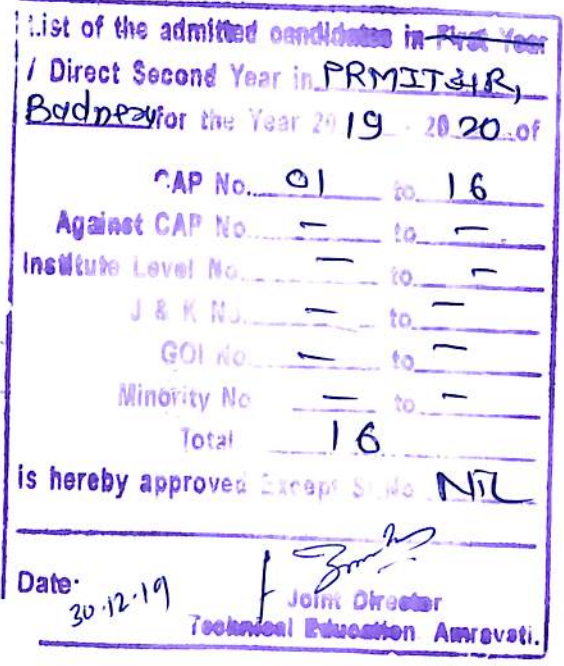 List of the admitted candidates in First Year
/ Direct Second Year in PRMIT&R,
Badnera for the Year 2019 - 2020 of
CAP No. 01 to 16
Against CAP No. — to —
Institute Level No. — to —
J & K No. — to —
GOI No. — to —
Minority No — to —
Total 16
is hereby approved Except Sr. No NIL
Date: 30.12.19
Joint Director
Technical Education Amravati.